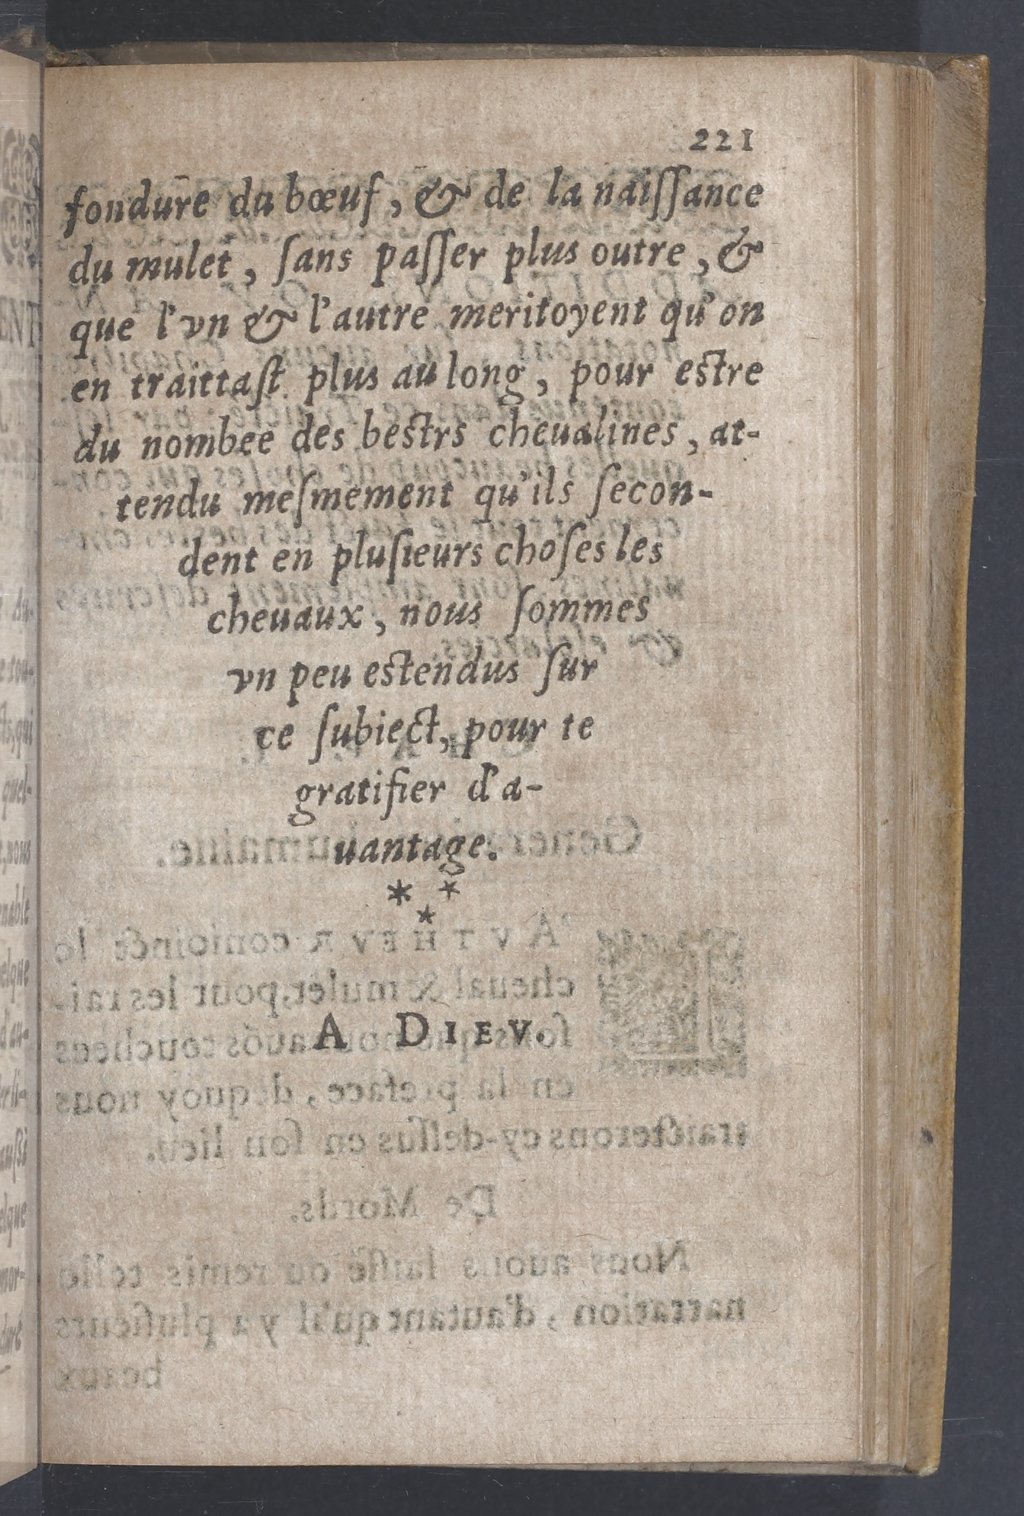 221
fondure du bœuf, & de la naiſſance
du mulet, ſans paſſer plus outre, &
que l'vn & l'autre meritoyent qu'on
en traittaſt plus au long, pour eſtre
du nombee des beſtrs cheualines, at-
tendu meſmement qu'ils ſecon-
dent en pluſieurs choſes les
cheuaux, nous ſommes
vn peu eſtendus ſur
ce ſubiect, pour te
gratifier d'a-
uantage.
* *
*
A DIEV.